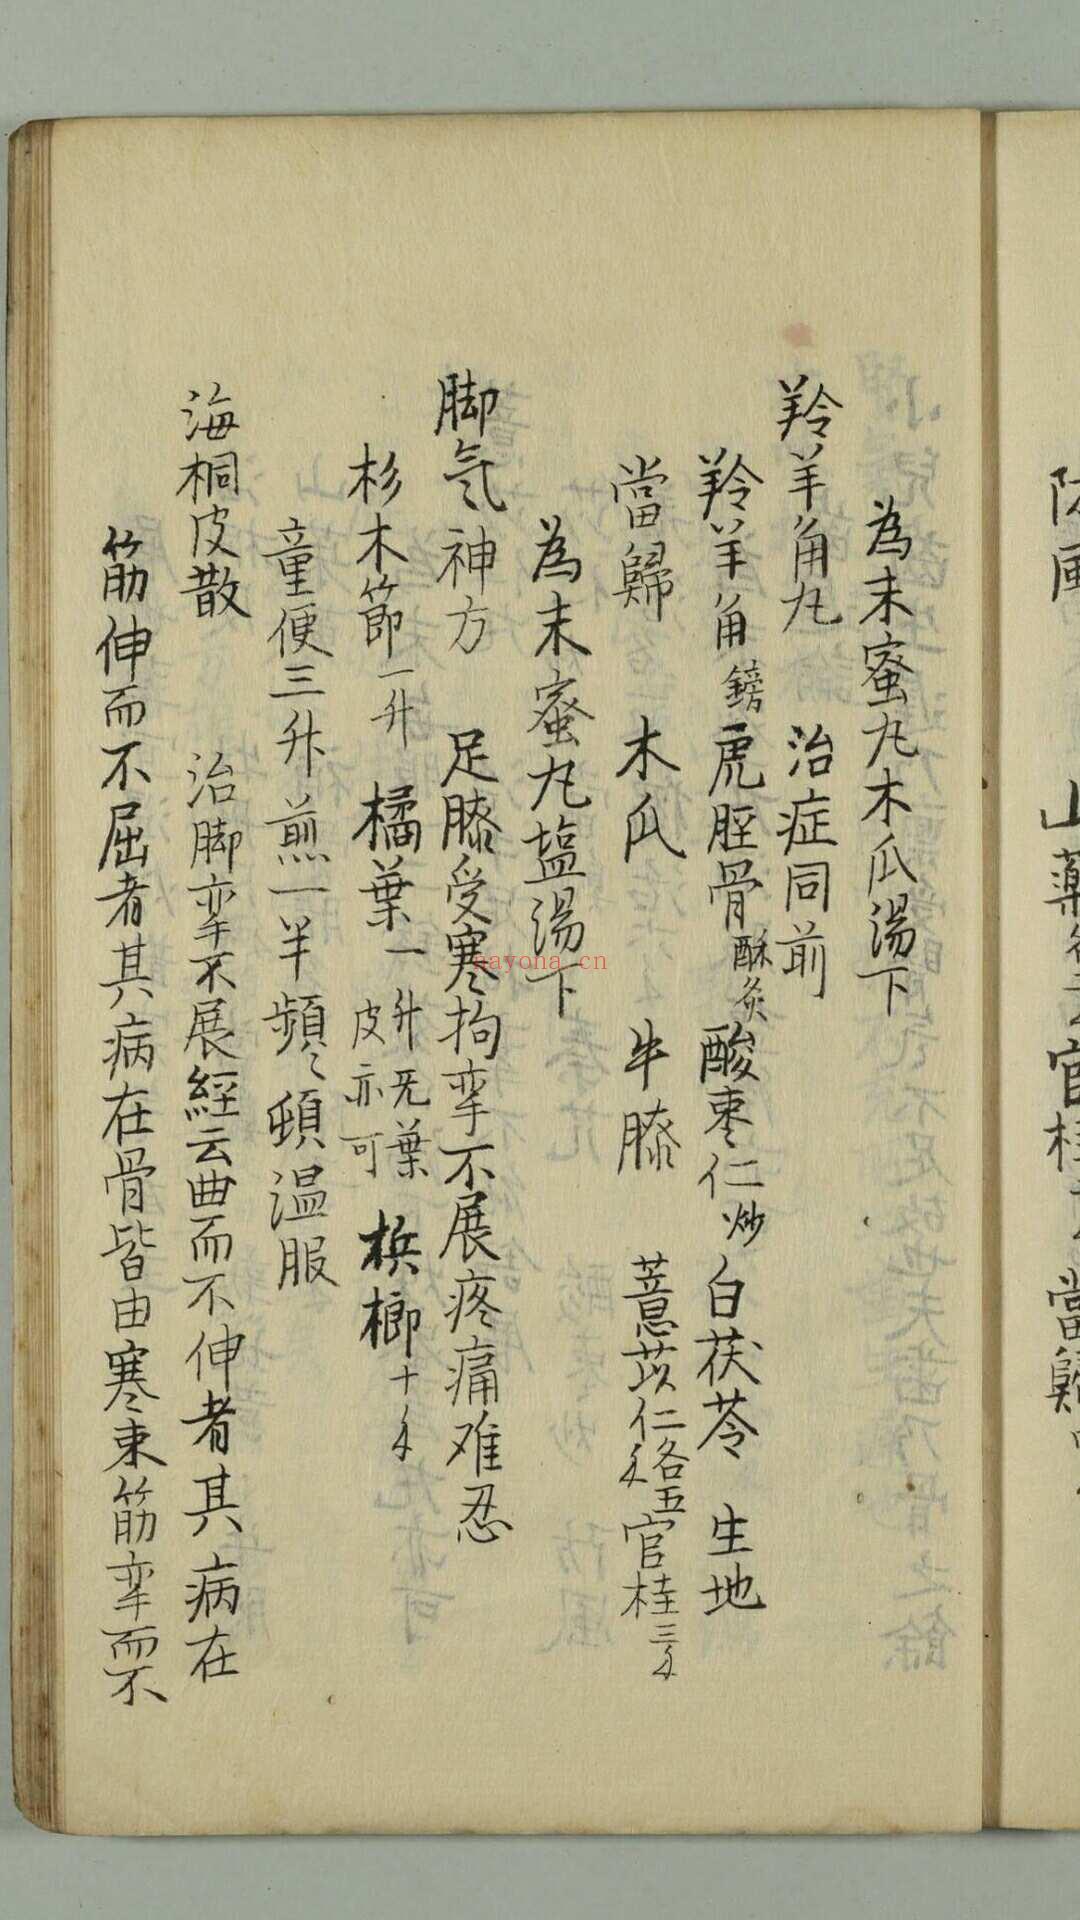 為末蜜丸木瓜湯下
羚羊角丸 治症同前
羚羊角鎊虎脛骨酥炙酸棗仁炒白茯苓 生地
當歸 木瓜 牛膝 薏苡仁各五官桂三
為末蜜丸塩湯下
脚气神方 足膝受寒拘挛不展疼痛难忍
杉木節一升 橘葉一升无葉皮亦可 槟榔十
童便三升煎一半頻々頓温服
海桐皮散 治脚挛不展経云曲而不伸者其病在
筋伸而不屈者其病在骨皆由寒束筋挛而不
山藥 官桂 當歸
nayona.cn